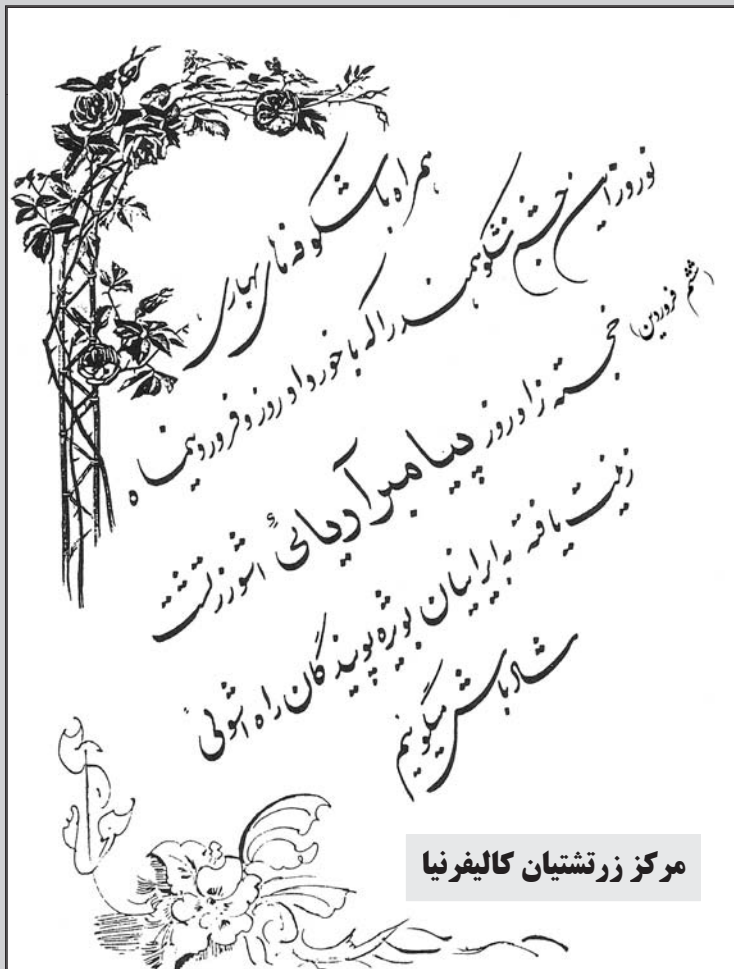 همراه با شکوفه های بهاری
نوروز این جشن شکوهمند را که با خورداد روز و فروردینماه
(ششم فروردین)
خجسته زاد روز پیامبر آریائی اشوزرتشت
زینت یافته به ایرانیان بویژه پویندگان راه اشوئی
شادباش میگوئیم
مرکز زرتشتیان کالیفرنیا